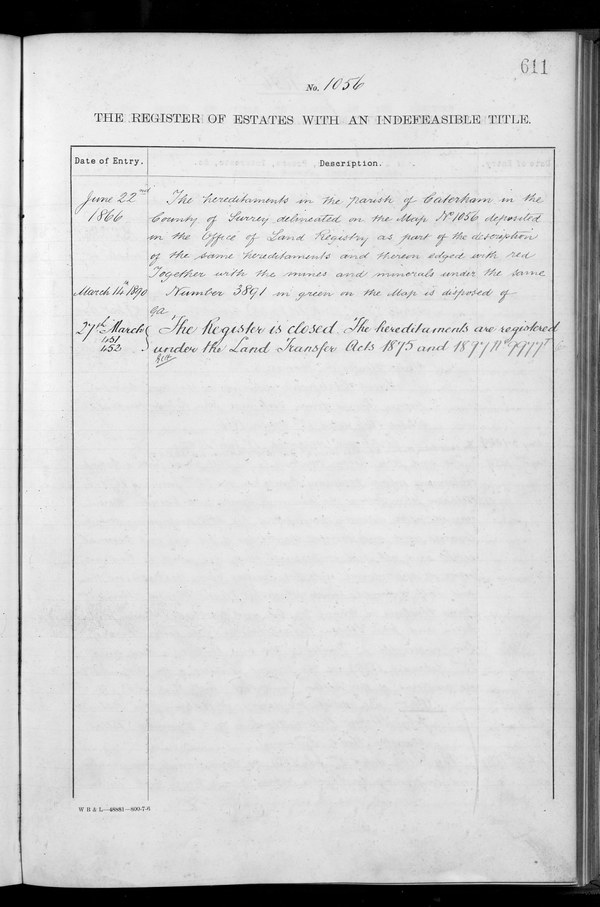 611
No. 1056
THE REGISTER OF ESTATES WITH AN INDEFEASIBLE TITLE.
Date of Entry.
Description.
June 22nd The hereditaments in the parish of Caterham in the
1866 County of Surrey delineated on the Map No 1056 deposited
in the Office of Land Registry as part of the description
of the same hereditaments and thereon edged with red
Together with the mines and minerals under the same
March 14th 1890 Number 3891 in green on the Map is disposed of
27th March The Register is closed. The hereditaments are registered
451
452 under the Land Transfer Acts 1875 and 1897
W B & L—48881—800-7-6